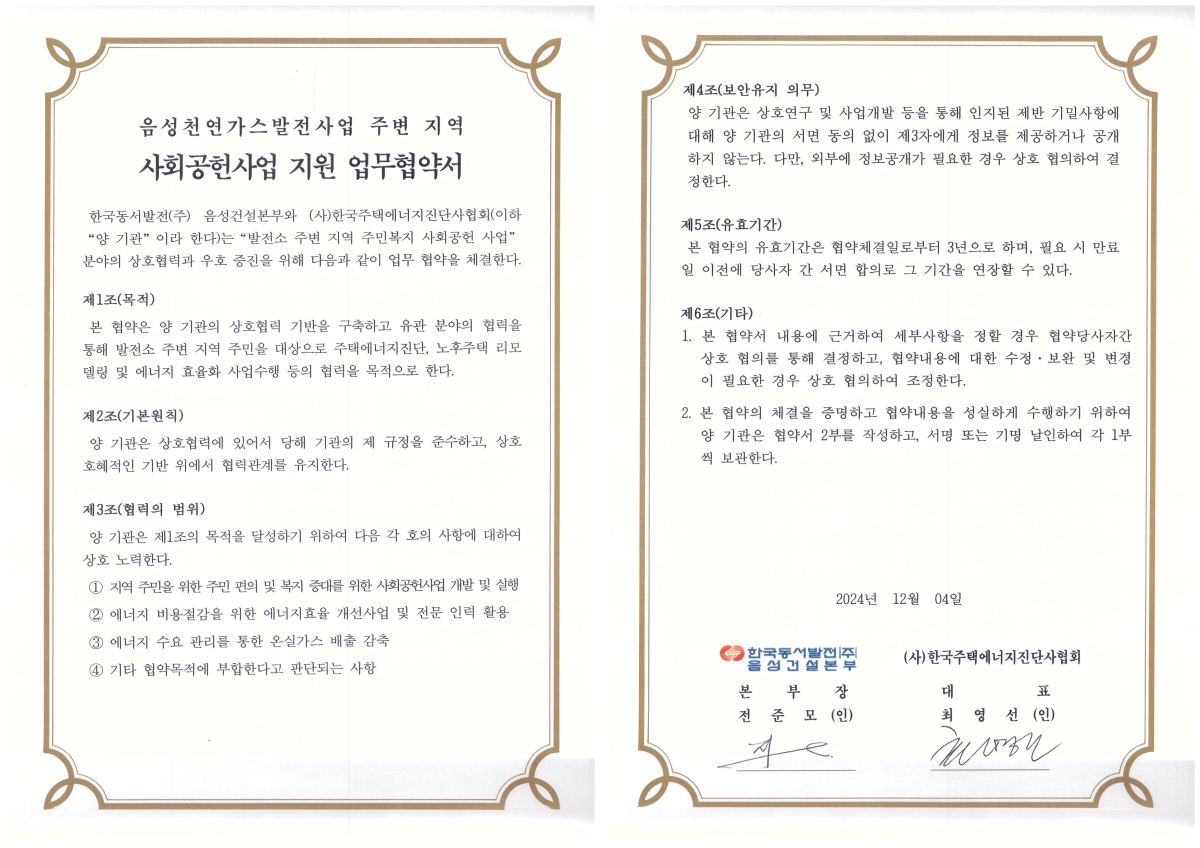 음성천연가스발전사업 주변 지역
사회공헌사업 지원 업무협약서
한국동서발전(주) 음성건설본부와 (사)한국주택에너지진단사협회(이하
“양 기관” 이라 한다)는 “발전소 주변 지역 주민복지 사회공헌 사업”
분야의 상호협력과 우호 증진을 위해 다음과 같이 업무 협약을 체결한다.
제1조(목적)
본 협약은 양 기관의 상호협력 기반을 구축하고 유관 분야의 협력을
통해 발전소 주변 지역 주민을 대상으로 주택에너지진단, 노후주택 리모
델링 및 에너지 효율화 사업수행 등의 협력을 목적으로 한다.
제2조(기본원칙)
양 기관은 상호협력에 있어서 당해 기관의 제 규정을 준수하고, 상호
호혜적인 기반 위에서 협력관계를 유지한다.
제3조(협력의 범위)
양 기관은 제1조의 목적을 달성하기 위하여 다음 각 호의 사항에 대하여
상호 노력한다.
① 지역 주민을 위한 주민 편의 및 복지 증대를 위한 사회공헌사업 개발 및 실행
② 에너지 비용절감을 위한 에너지효율 개선사업 및 전문 인력 활용
③ 에너지 수요 관리를 통한 온실가스 배출 감축
④ 기타 협약목적에 부합한다고 판단되는 사항
제4조(보안유지 의무)
양 기관은 상호연구 및 사업개발 등을 통해 인지된 제반 기밀사항에
대해 양 기관의 서면 동의 없이 제3자에게 정보를 제공하거나 공개
하지 않는다. 다만, 외부에 정보공개가 필요한 경우 상호 협의하여 결
정한다.
제5조(유효기간)
본 협약의 유효기간은 협약체결일로부터 3년으로 하며, 필요 시 만료
일 이전에 당사자 간 서면 합의로 그 기간을 연장할 수 있다.
제6조(기타)
1. 본 협약서 내용에 근거하여 세부사항을 정할 경우 협약당사자간
상호 협의를 통해 결정하고, 협약내용에 대한 수정·보완 및 변경
이 필요한 경우 상호 협의하여 조정한다.
2. 본 협약의 체결을 증명하고 협약내용을 성실하게 수행하기 위하여
양 기관은 협약서 2부를 작성하고, 서명 또는 기명 날인하여 각 1부
씩 보관한다.
2024년 12월 04일
한국동서발전(주)
음성건설본부
(사)한국주택에너지진단사협회
본 부 장
대 표
전 준 모 (인)
최 영 선 (인)